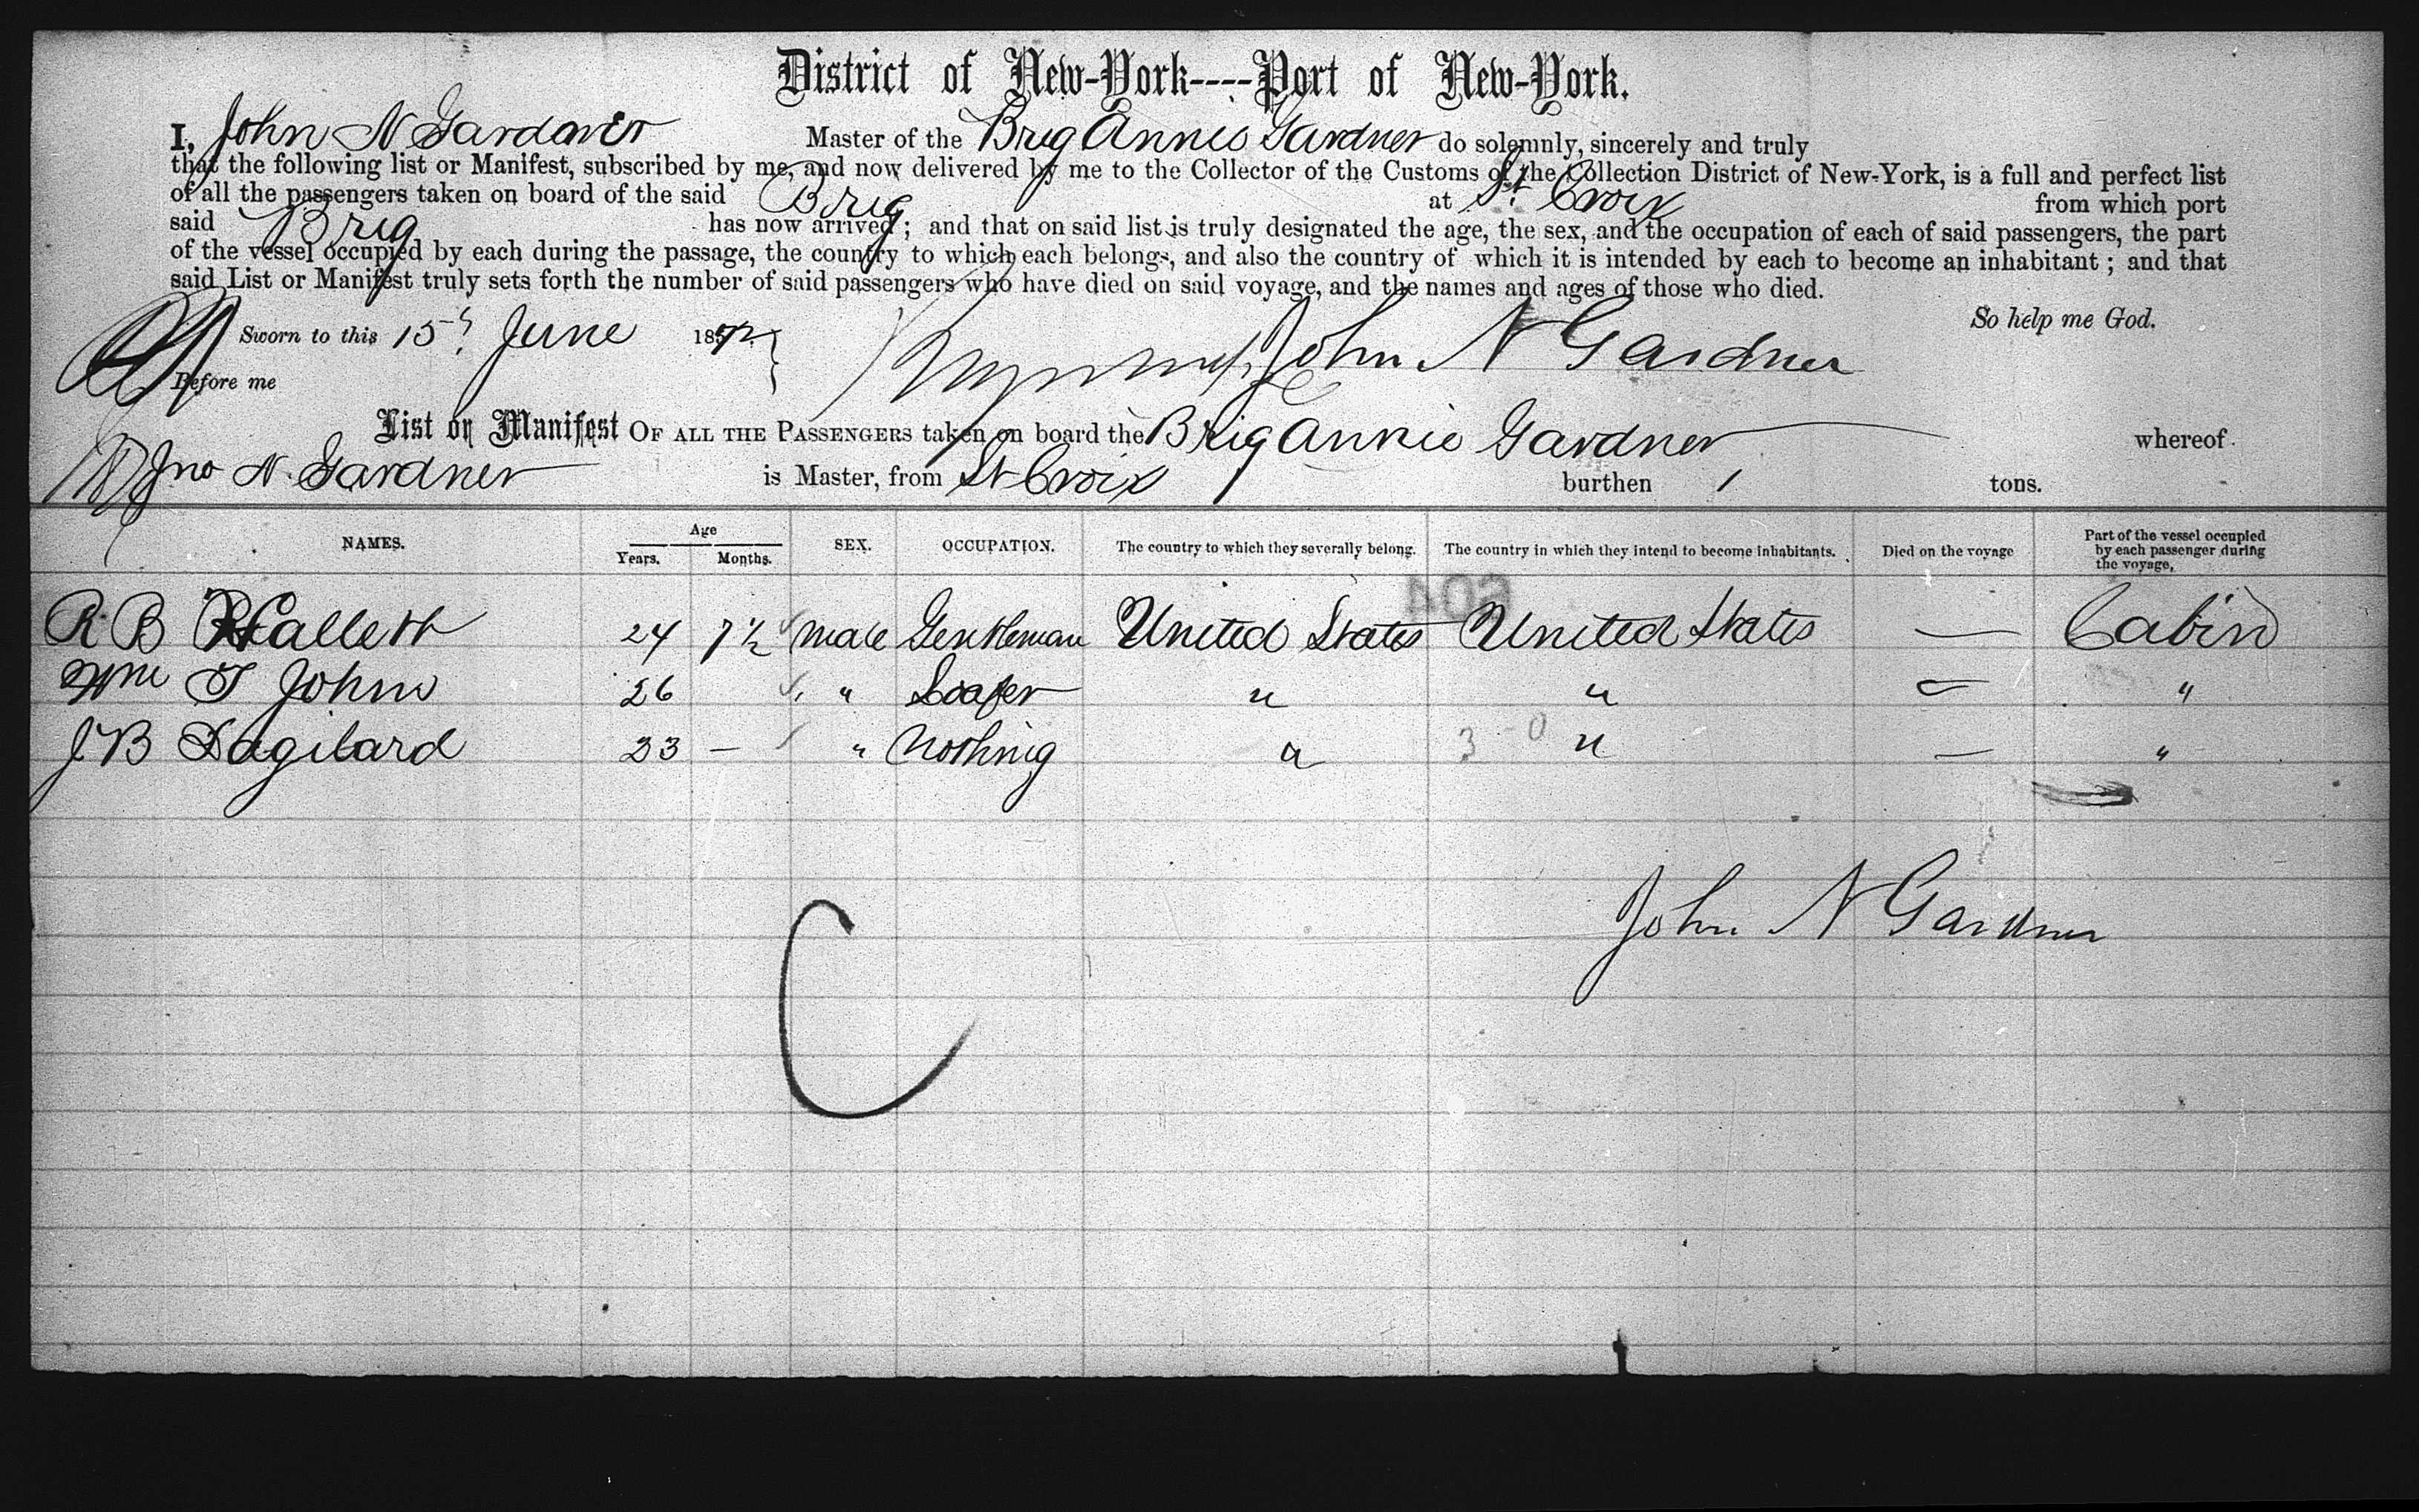 District of New-York----Port of New-York.
I, John N Gardner Master of the Brig Annie Gardner do solemnly, sincerely and truly
that the following list or Manifest, subscribed by me, and now delivered by me to the Collector of the Customs of the Collection District of New-York, is a full and perfect list
of all the passengers taken on board of the said Brig at St. Croix from which port
said Brig has now arrived; and that on said list is truly designated the age, the sex, and the occupation of each of said passengers, the part
of the vessel occupied by each during the passage, the country to which each belongs, and also the country of which it is intended by each to become an inhabitant; and that
said List or Manifest truly sets forth the number of said passengers who have died on said voyage, and the names and ages of those who died.
So help me God.
Sworn to this 15th June 1872 John N Gardner
Before me
List or Manifest OF ALL THE PASSENGERS taken on board the Brig Annie Gardner whereof
Jno N. Gardner is Master, from St Croix burthen tons.
NAMES. Age Years. Months. SEX. OCCUPATION. The country to which they severally belong. The country in which they intend to become inhabitants. Died on the voyage Part of the vessel occupied by each passenger during the voyage,
604
R B Hallett 24 7½ male Gentleman United States United States — Cabin
Wm T John 26 " Loafer " " — "
J B 23 — " Nothing " " — "
3 0
John N Gardner
C